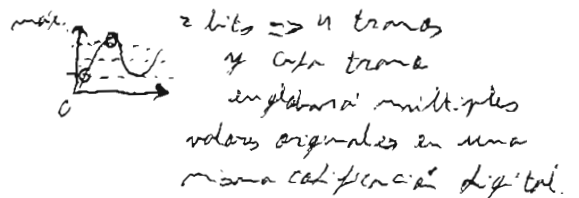 máx.
0
2 bits => 4 tramos
y cada tramo
englobará múltiples
valores originales en una
misma codificación digital.